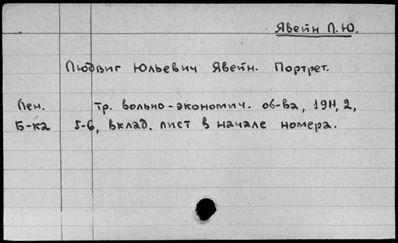 Явейн Л.Ю.
Людвиг Юльевич Явейн. Портрет.
Лен. Тр. вольно-экономич. об-ва, 1911, 2,
Б-ка 5-6, вклад. лист в начале номера.